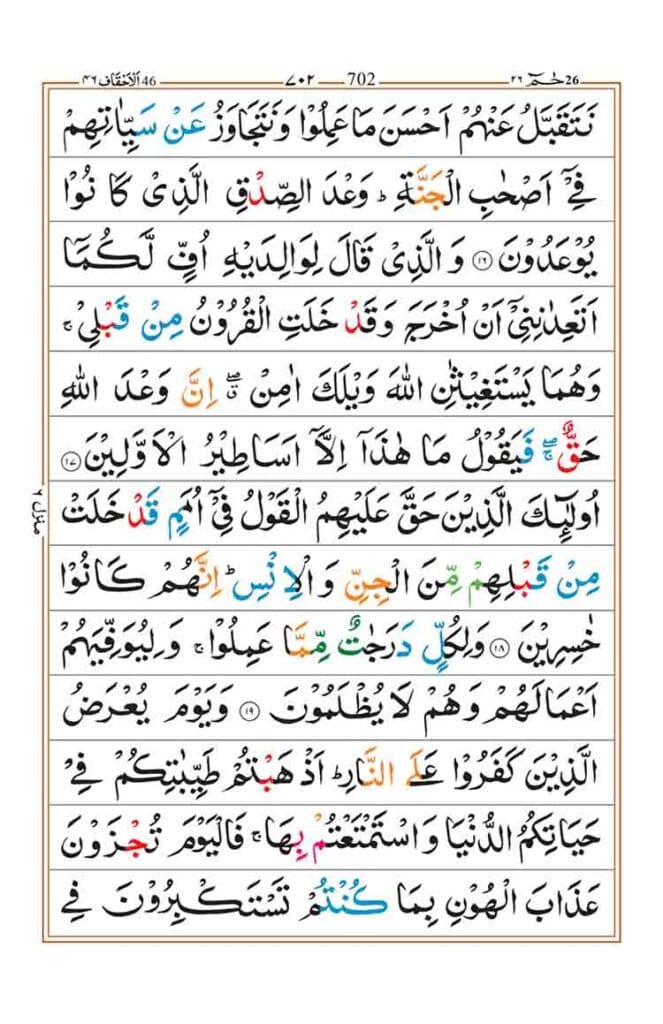 حٰمٓ 26 ٢٦ 702 ٧٠٢ الاحقاف 46 ٤٦
نَتَقَبَّلُ عَنْهُمْ اَحْسَنَ مَا عَمِلُوْا وَنَتَجَاوَزُ عَنْ سَيِّاٰتِهِمْ
فِيْۤ اَصْحٰبِ الْجَنَّةِ ؕ وَعْدَ الصِّدْقِ الَّذِيْ كَانُوْا
يُوْعَدُوْنَ ﴿١٦﴾ وَالَّذِيْ قَالَ لِوَالِدَيْهِ اُفٍّ لَّكُمَاۤ
اَتَعِدٰنِنِيْۤ اَنْ اُخْرَجَ وَقَدْ خَلَتِ الْقُرُوْنُ مِنْ قَبْلِيْ ۚ
وَهُمَا يَسْتَغِيْثٰنِ اللّٰهَ وَيْلَكَ اٰمِنْ ۖ ۗ اِنَّ وَعْدَ اللّٰهِ
حَقٌّ ۖۚ فَيَقُوْلُ مَا هٰذَاۤ اِلَّاۤ اَسَاطِيْرُ الْاَوَّلِيْنَ ﴿١٧﴾
اُولٰٓئِكَ الَّذِيْنَ حَقَّ عَلَيْهِمُ الْقَوْلُ فِيْۤ اُمَمٍ قَدْ خَلَتْ
مِنْ قَبْلِهِمْ مِّنَ الْجِنِّ وَالْاِنْسِ ؕ اِنَّهُمْ كَانُوْا
خٰسِرِيْنَ ﴿١٨﴾ وَلِكُلٍّ دَرَجٰتٌ مِّمَّا عَمِلُوْا ۚ وَلِيُوَفِّيَهُمْ
اَعْمَالَهُمْ وَهُمْ لَا يُظْلَمُوْنَ ﴿١٩﴾ وَيَوْمَ يُعْرَضُ
الَّذِيْنَ كَفَرُوْا عَلَى النَّارِ ؕ اَذْهَبْتُمْ طَيِّبٰتِكُمْ فِيْ
حَيَاتِكُمُ الدُّنْيَا وَاسْتَمْتَعْتُمْ بِهَا ۚ فَالْيَوْمَ تُجْزَوْنَ
عَذَابَ الْهُوْنِ بِمَا كُنْتُمْ تَسْتَكْبِرُوْنَ فِي
منزل ٦